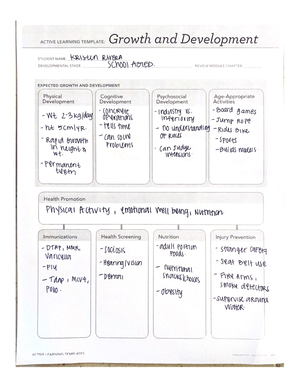 ACTIVE LEARNING TEMPLATE: Growth and Development
STUDENT NAME Kristen Rivera
DEVELOPMENTAL STAGE School Aged
REVIEW MODULE CHAPTER
EXPECTED GROWTH AND DEVELOPMENT
Physical Development
- Wt 2-3kg/day
- Ht 5cm/yr.
- Rapid growth in height & wt.
- Permanent teeth
Cognitive Development
- Concrete operations
- Tells time
- Can solve problems
Psychosocial Development
- Industry vs. inferiority
- No understanding of
- Can judge
Age-Appropriate Activities
- Board games
- Jump rope
- Rides bike
- Sports
- Builds models
Health Promotion
Physical Activity, emotional well being, Nutrition
Immunizations
- DTAP, MMR, Varicella
- Flu
- Tdap, MCV4, Polio
Health Screening
- Scoliosis
- Hearing/vision
- Dental
Nutrition
- adult portion foods
- nutritional
- obesity
Injury Prevention
- stranger safety
- Seat belt use
- Fire arms, smoke detectors
- supervise around water
ACTIVE LEARNING TEMPLATES